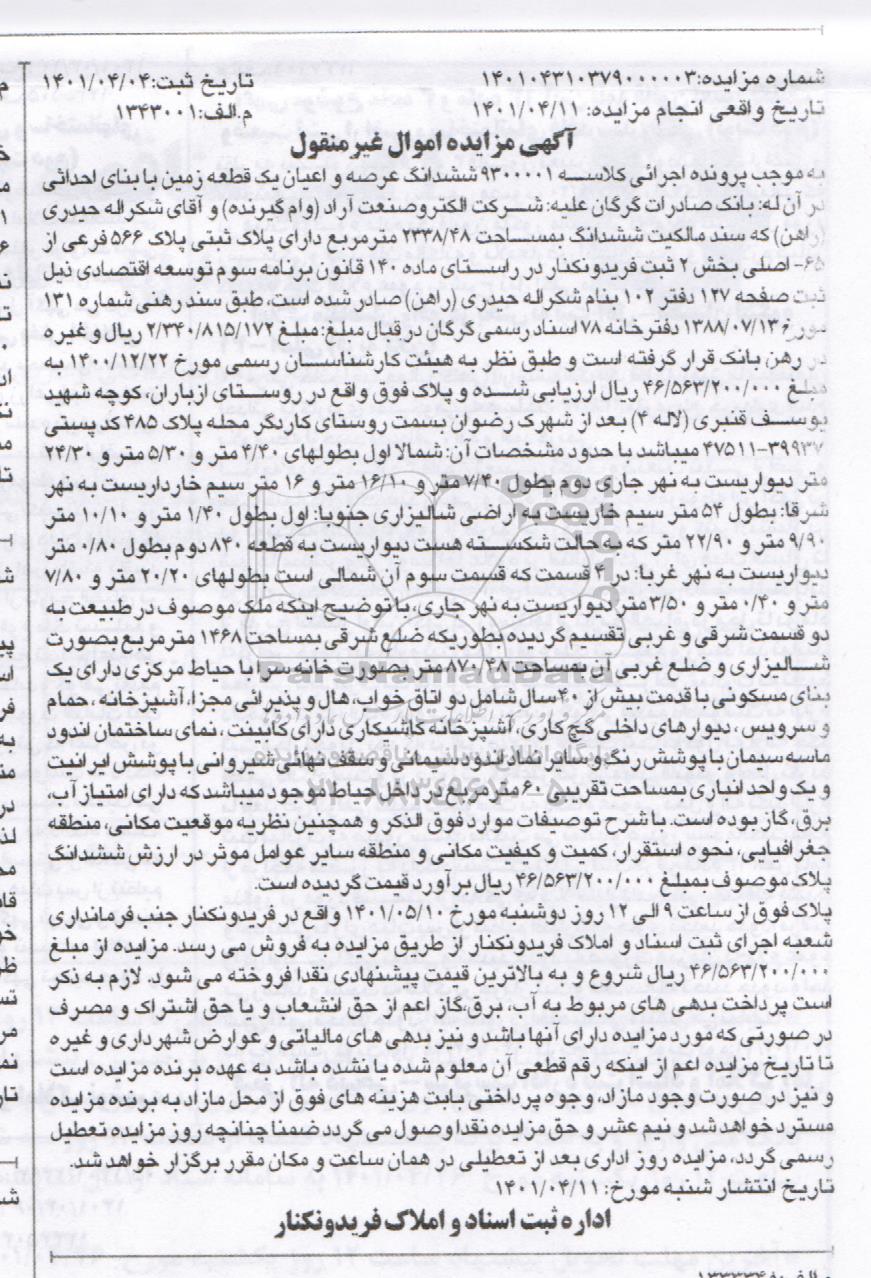 شماره مزایده:۱۴۰۱۰۴۳۱۰۳۷۹۰۰۰۰۰۳
تاریخ ثبت:۱۴۰۱/۰۴/۰۴
تاریخ واقعی انجام مزایده: ۱۴۰۱/۰۴/۱۱
م.الف:۱۳۴۳۰۰۱
آگهی مزایده اموال غیر منقول
به موجب پرونده اجرائی کلاسه ۹۳۰۰۰۰۱ ششدانگ عرصه و اعیان یک قطعه زمین با بنای احداثی
در آن له: بانک صادرات گرگان علیه: شرکت الکتروصنعت آراد (وام گیرنده) و آقای شکراله حیدری
(راهن) که سند مالکیت ششدانگ بمساحت ۲۳۳۸/۴۸ مترمربع دارای پلاک ثبتی پلاک ۵۶۶ فرعی از
۶۵- اصلی بخش ۲ ثبت فریدونکنار در راستای ماده ۱۴۰ قانون برنامه سوم توسعه اقتصادی ذیل
ثبت صفحه ۱۲۷ دفتر ۱۰۲ بنام شکراله حیدری (راهن) صادر شده است. طبق سند رهنی شماره ۱۳۱
مورخ ۱۳۸۸/۰۷/۱۳۶ دفتر خانه ۷۸ اسناد رسمی گرگان در قبال مبلغ: مبلغ ۲/۳۴۰/۸۱۵/۱۷۲ ریال و غیره
در رهن بانک قرار گرفته است و طبق نظر به هیئت کارشناسان رسمی مورخ ۱۴۰۰/۱۲/۲۲ به
مبلغ ۴۶/۵۶۳/۲۰۰/۰۰۰ ریال ارزیابی شده و پلاک فوق واقع در روستای ازباران، کوچه شهید
یوسف قنبری (لاله ۴) بعد از شهرک رضوان بسمت روستای کاردگر محله پلاک ۴۸۵ کد پستی
۴۷۵۱۱-۳۹۹۳۷ میباشد با حدود مشخصات آن: شمالا اول بطولهای ۴/۴۰ متر و ۵/۳۰ متر و ۲۴/۳۰
متر دیواریست به نهر جاری دوم بطول ۷/۴۰ متر و ۱۶/۱۰ متر و ۱۶ متر سیم خارداریست به نهر
شرقا: بطول ۵۴ متر سیم خاریست به اراضی شالیزاری جنوبا: اول بطول ۱/۴۰ متر و ۱۰/۱۰ متر
۹/۹۰ متر و ۲۲/۹۰ متر که به حالت شکسته هست دیواریست به قطعه ۸۴۰ دوم بطول ۰/۸۰ متر
دیواریست به نهر غربا: در ۴ قسمت که قسمت سوم آن شمالی است بطولهای ۲۰/۲۰ متر و ۷/۸۰
متر و ۰/۴۰ متر و ۳/۵۰ متر دیواریست به نهر جاری، با توضیح اینکه ملک موصوف در طبیعت به
دو قسمت شرقی و غربی تقسیم گردیده بطوریکه ضلع شرقی بمساحت ۱۴۶۸ متر مربع بصورت
شالیزاری و ضلع غربی آن بمساحت ۸۷۰/۴۸ متر بصورت خانه سرا با حیاط مرکزی دارای یک
بنای مسکونی با قدمت بیش از ۴۰ سال شامل دو اتاق خواب، هال و پذیرائی مجزا، آشپزخانه ، حمام
و سرویس ، دیوارهای داخلی گچ کاری، آشپزخانه کاشیکاری دارای کابینت ، نمای ساختمان اندود
ماسه سیمان با پوشش رنگ و سایر نماز اندود سیمانی و سقف نهائی شیروانی با پوشش ایرانیت
و یک واحد انباری بمساحت تقریبی ۶۰ متر مربع در داخل حیاط موجود میباشد که دارای امتیاز آب،
برق، گاز بوده است. با شرح توصیفات موارد فوق الذکر و همچنین نظر به موقعیت مکانی، منطقه
جغرافیایی، نحوه استقرار، کمیت و کیفیت مکانی و منطقه سایر عوامل موثر در ارزش ششدانگ
پلاک موصوف بمبلغ ۴۶/۵۶۳/۲۰۰/۰۰۰ ریال برآورد قیمت گردیده است.
پلاک فوق از ساعت ۹ الی ۱۲ روز دوشنبه مورخ ۱۴۰۱/۰۵/۱۰ واقع در فریدونکنار جنب فرمانداری
شعبه اجرای ثبت اسناد و املاک فریدونکنار از طریق مزایده به فروش می رسد. مزایده از مبلغ
۴۶/۵۶۳/۲۰۰/۰۰۰ ریال شروع و به بالاترین قیمت پیشنهادی نقدا فروخته می شود. لازم به ذکر
است پرداخت بدهی های مربوط به آب، برق،گاز اعم از حق انشعاب و یا حق اشتراک و مصرف
در صورتی که مورد مزایده دارای آنها باشد و نیز بدهی های مالیاتی و عوارض شهرداری و غیره
تا تاریخ مزایده اعم از اینکه رقم قطعی آن معلوم شده یا نشده باشد به عهده برنده مزایده است
و نیز در صورت وجود مازاد، وجوه پرداختی بابت هزینه های فوق از محل مازاد به برنده مزایده
مسترد خواهد شد و نیم عشر و حق مزایده نقدا وصول می گردد ضمنا چنانچه روز مزایده تعطیل
رسمی گردد، مزایده روز اداری بعد از تعطیلی در همان ساعت و مکان مقرر برگزار خواهد شد.
تاریخ انتشار شنبه مورخ: ۱۴۰۱/۰۴/۱۱
اداره ثبت اسناد و املاک فریدونکنار
ParsNamadData